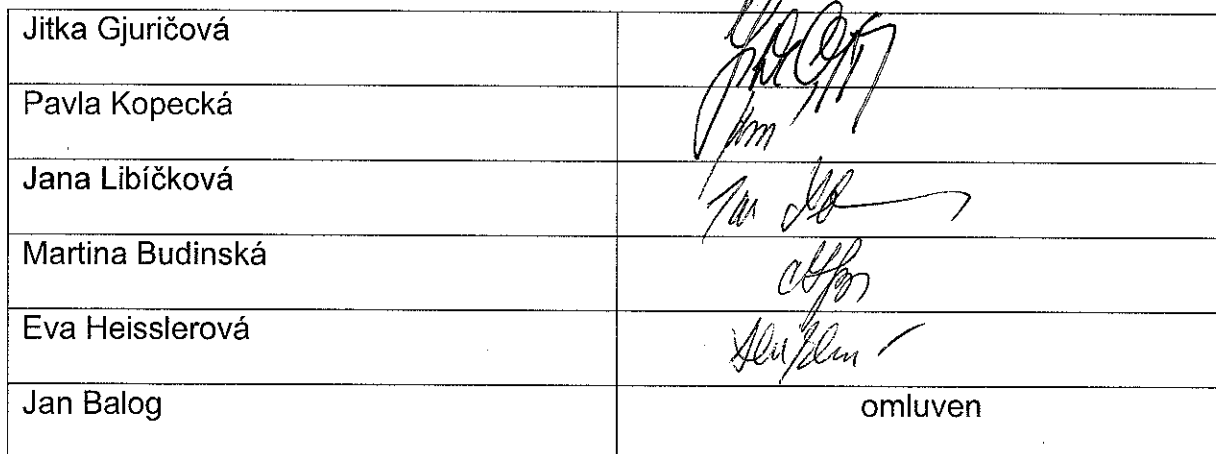 Jitka Gjuričová
Pavla Kopecká
Jana Libíčková
Martina Budinská
Eva Heisslerová
Jan Balog omluven